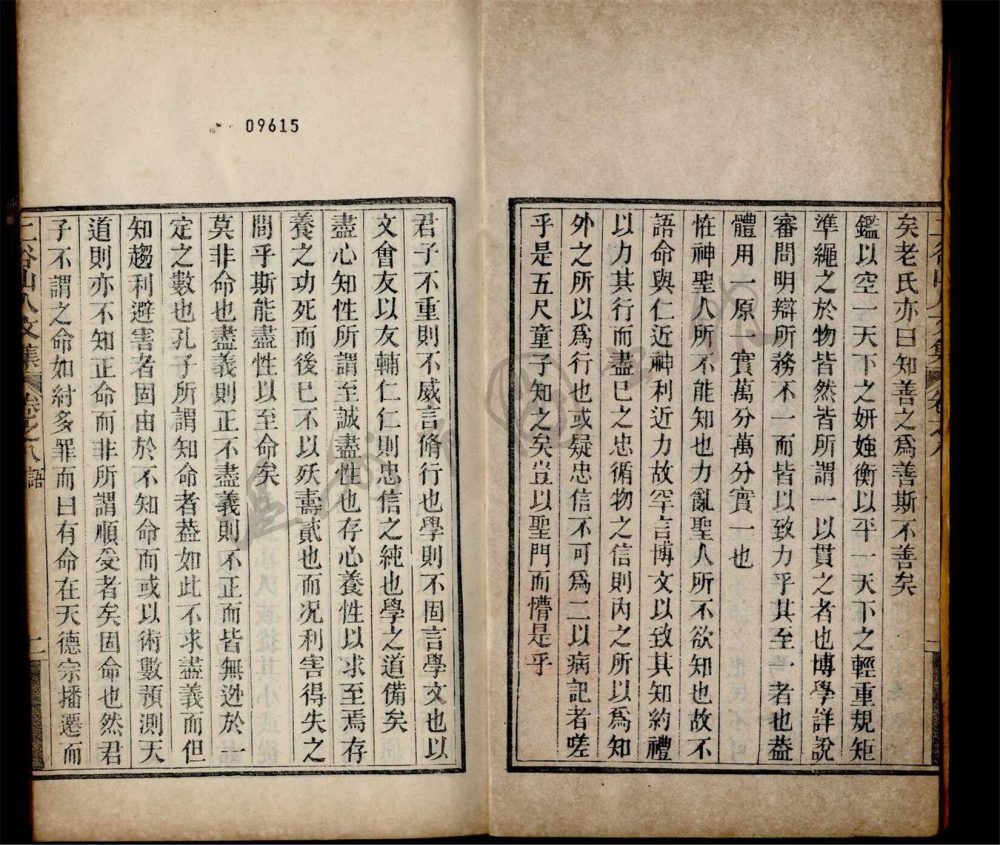 矣老氏亦曰知善之爲善斯不善矣
鑑以空一天下之妍媸衡以平一天下之輕重規矩
準繩之於物皆然皆所謂一以貫之者也博學詳說
審問明辯所務不一而皆以致力乎其至一者也葢
體用一原一實萬分萬分實一也
怪神聖人所不能知也力亂聖人所不欲知也故不
語命與仁近神利近力故罕言博文以致其知約禮
以力其行而盡已之忠循物之信則內之所以爲知
外之所以爲行也或疑忠信不可爲二以病記者嗟
乎是五尺童子知之矣豈以聖門而懵是乎
君子不重則不威言脩行也學則不固言學文也以
文會友以友輔仁仁則忠信之純也學之道備矣
盡心知性所謂至誠盡性也存心養性以求至焉存
養之功死而後已不以殀壽貳也而况利害得失之
間乎斯能盡性以至命矣
莫非命也盡義則正不盡義則不正而皆無逃於一
定之數也孔子所謂知命者葢如此不求盡義而但
知趨利避害者固由於不知命而或以術數預測天
道則亦不知正命而非所謂順受者矣固命也然君
子不謂之命如紂多罪而曰有命在天德宗播遷而
二谷山人文集 卷之八 語
09615